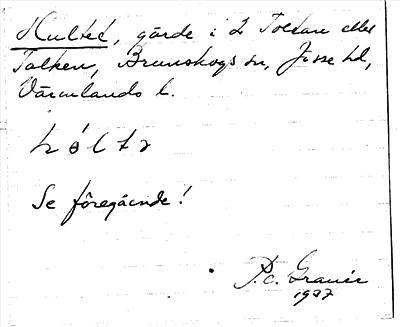 Hultet, gärde i L Tolkan eller
Tolken, Brunskogs sn, Jösse hd,
Värmlands l.
hólta
Se föregående!
P.C. Granér
1937